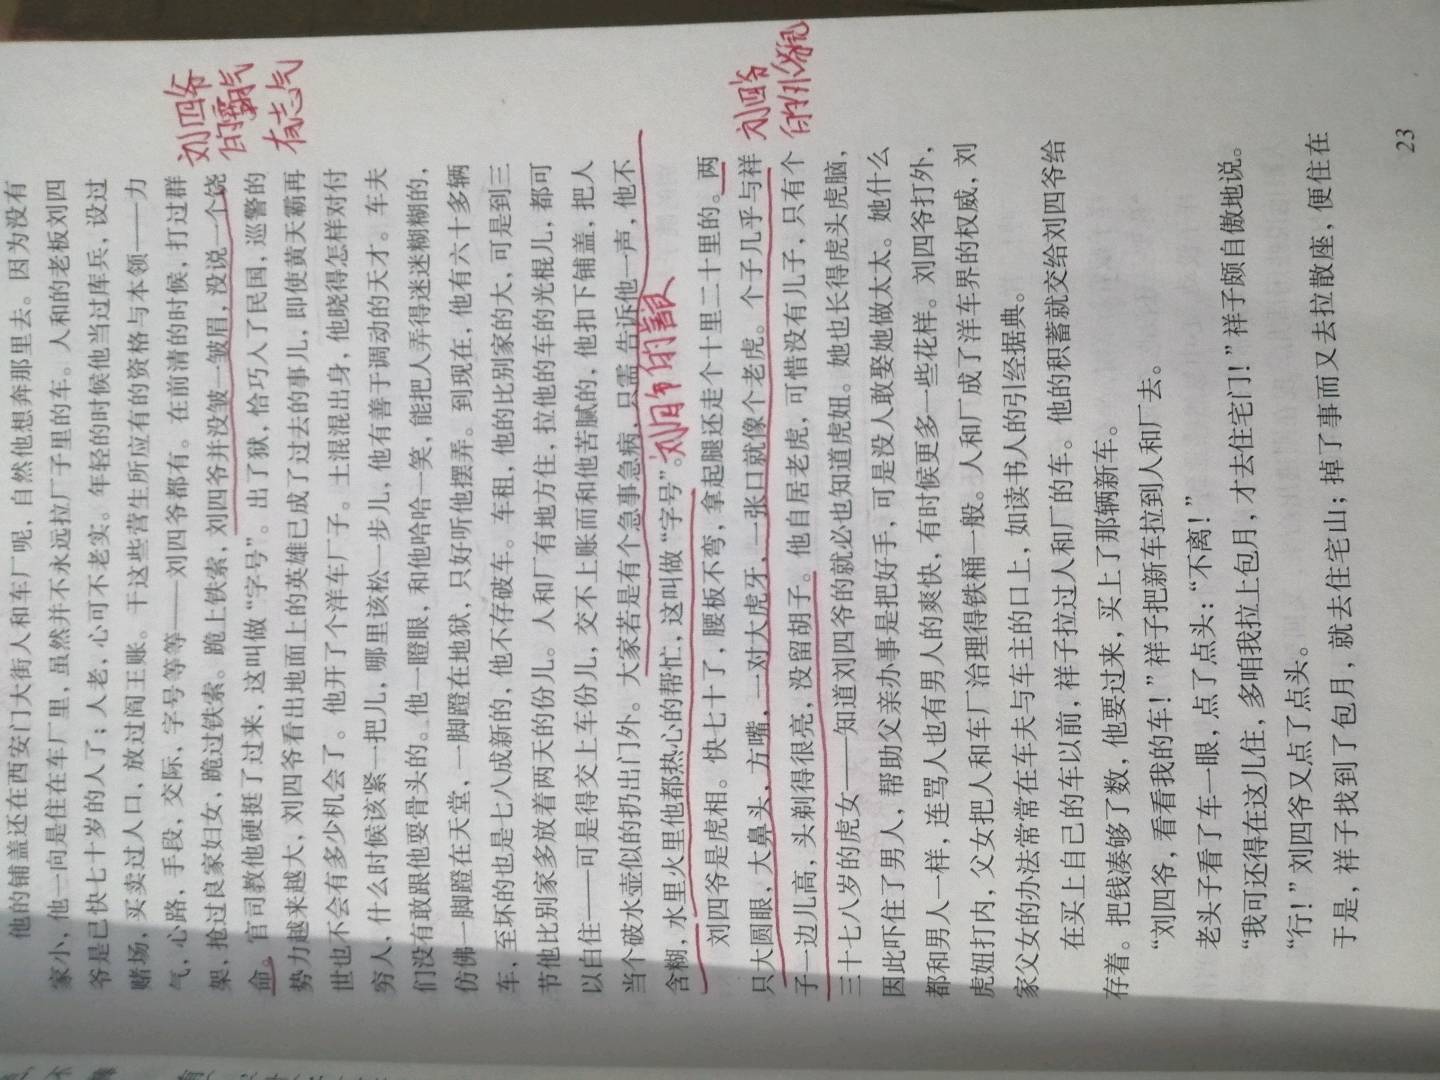 他的铺盖还在西安门大街人和车厂呢，自然他想奔那里去。因为没有
家小，他一向是住在车厂里，虽然并不永远拉厂子里的车。人和的老板刘四
爷是已快七十岁的人了；人老，心可不老实。年轻的时候他当过库兵，设过
赌场，买卖过人口，放过阎王账。干这些营生所应有的资格与本领——力
气，心路，手段，交际，字号等等——刘四爷都有。在前清的时候，打过群
架，抢过良家妇女，跪过铁索。跪上铁索，刘四爷并没皱一皱眉，没说一个饶
命。官司教他硬挺了过来，这叫做“字号”。出了狱，恰巧入了民国，巡警的
势力越来越大，刘四爷看出地面上的英雄已成了过去的事儿，即使黄天霸再
世也不会有多少机会了。他开了个洋车厂子。土混混出身，他晓得怎样对付
穷人，什么时候该紧一把儿，哪里该松一步儿，他有善于调动的天才。车夫
们没有敢跟他耍骨头的。他一瞪眼，和他哈哈一笑，能把人弄得迷迷糊糊的，
仿佛一脚蹬在天堂，一脚蹬在地狱，只好听他摆弄。到现在，他有六十多辆
车，至坏的也是七八成新的，他不存破车。车租，他的比别家的大，可是到三
节他比别家多放着两天的份儿。人和厂有地方住，拉他的车的光棍儿，都可
以白住——可是得交上车份儿，交不上账而和他苦腻的，他扣下铺盖，把人
当个破水壶似的扔出门外。大家若是有个急事急病，只需告诉他一声，他不
含糊，水里火里他都热心的帮忙，这叫做“字号”。
刘四爷是虎相。快七十了，腰板不弯，拿起腿还走个十里二十里的。两
只大圆眼，大鼻头，方嘴，一对大虎牙，一张口就像个老虎。个子几乎与祥
子一边儿高，头剃得很亮，没留胡子。他自居老虎，可惜没有儿子，只有个
三十七八岁的虎女——知道刘四爷的就必也知道虎妞。她也长得虎头虎脑，
因此吓住了男人，帮助父亲办事是把好手，可是没人敢娶她做太太。她什么
都和男人一样，连骂人也有男人的爽快，有时候更多一些花样。刘四爷打外，
虎妞打内，父女把人和车厂治理得铁桶一般。人和厂成了洋车界的权威，刘
家父女的办法常常在车夫与车主的口上，如读书人的引经据典。
在买上自己的车以前，祥子拉过人和厂的车。他的积蓄就交给刘四爷给
存着。把钱凑够了数，他要过来，买上了那辆新车。
“刘四爷，看看我的车！”祥子把新车拉到人和厂去。
老头子看了车一眼，点了点头：“不离！”
“我可还得在这儿住，多咱我拉上包月，才去住宅门！”祥子颇自傲地说。
“行！”刘四爷又点了点头。
于是，祥子找到了包月，就去住宅山；掉了事而又去拉散座，便住在
23
刘四爷
的霸气
有志气
刘四爷的
刘四爷
的外貌